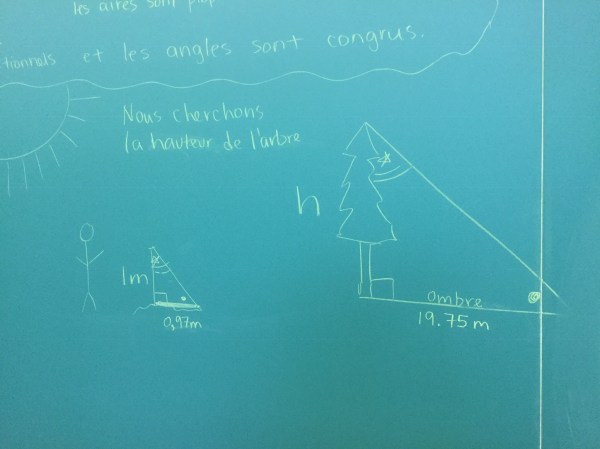 les aires sont
tionnels et les angles sont congrus.
Nous cherchons
la hauteur de l'arbre
h
1m
0,97m
ombre
19.75m